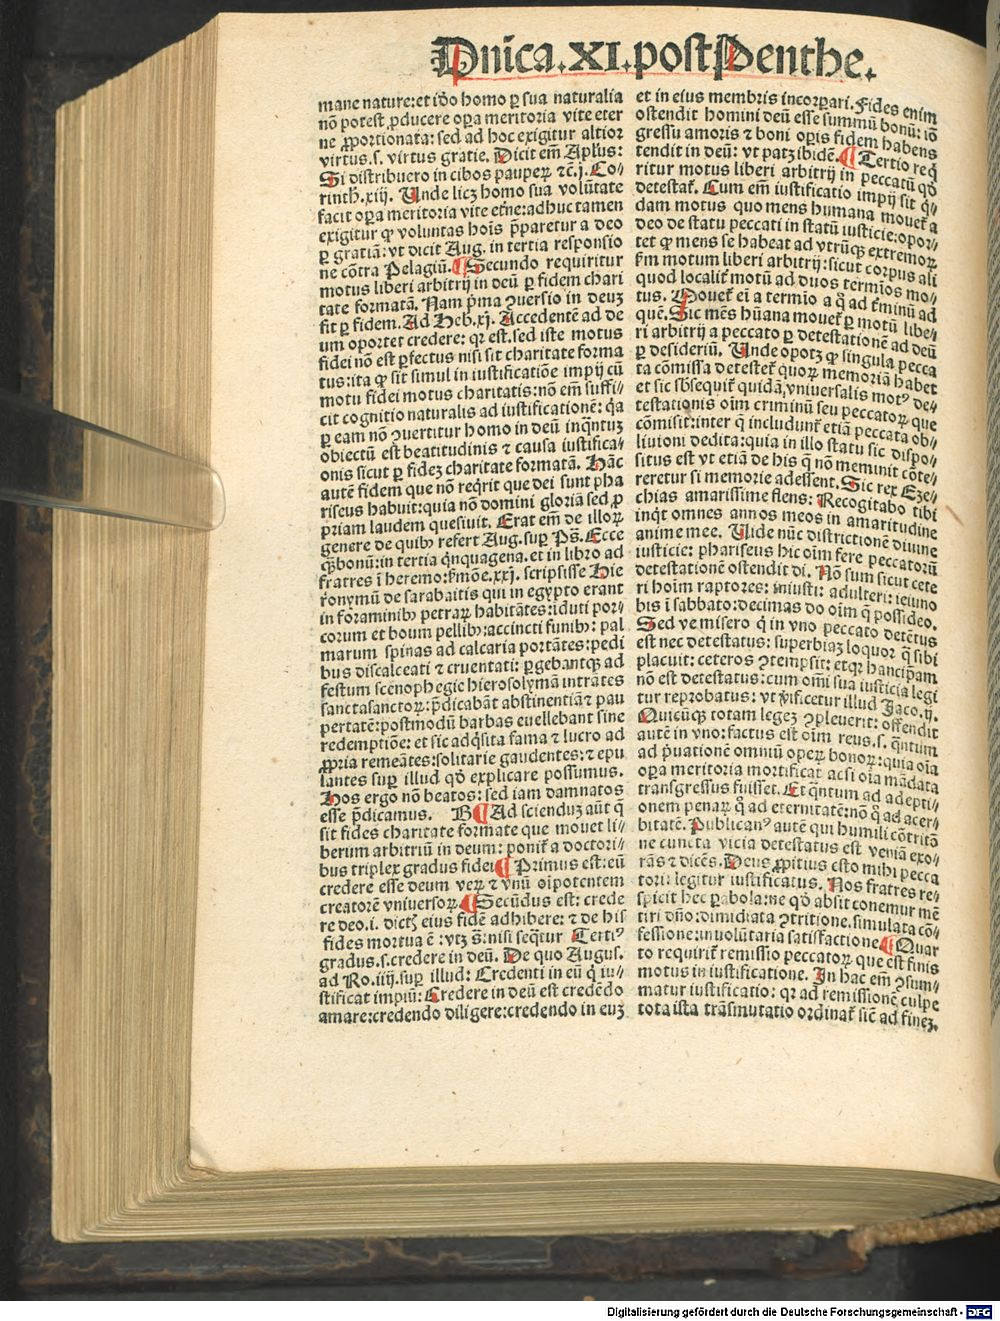 Dnica.XI.post Penthe.
mane nature:et iđo homo ꝑ sua naturalia
nō potest ꝓducere oꝑa meritoria vite eter
ne ꝓportionata: sed ad hoc exigitur altior
virtus.s. virtus gratie. Dicit em̄ Apl'us:
Si distribuero in cibos pauperꝝ ⁊c̄.j. Co⸗
rinth.xiij. Unde licꝫ homo sua volūtate
facit oꝑa meritoria vite et̄ne:adhuc tamen
exigitur ꝙ voluntas hoīs p̄paretur a deo
ꝑ gratiā: vt dicit Aug. in tertia responsio
ne cōtra Pelagiū. ¶ Secundo requiritur
motus liberi arbitrij in deū ꝑ fidem chari
tate formatā. Nam p̄ma ꝯuersio in deuꝫ
fit ꝑ fidem. Ad Heb.xj. Accedentē ad de
um oportet credere: qꝛ est. sed iste motus
fidei nō est ꝑfectus nisi sit charitate forma
tus:ita ꝙ sit simul in iustificatiōe impij cū
motu fidei motus charitatis:nō em̄ suffi⸗
cit cognitio naturalis ad iustificationē: q̄a
ꝑ eam nō ꝯuertitur homo in deū inq̄ntuꝫ
obiectū est beatitudinis ⁊ causa iustifica⸗
onis sicut ꝑ fideꝫ charitate formatā. Hāc
autē fidem que nō req̄rit que dei sunt pha
riseus habuit:quia nō domini gloriā sed ꝓ
priam laudem quesiuit. Erat em̄ de illoꝝ
genere de quibꝰ refert Aug. sup̄ Ps̄. Ecce
q̄ꝫbonū:in tertia q̄nquagena. et in libro ad
fratres ī heremo:ẜmōe.xxj. scripsisse Hie
r̄onymū de sarabaitis qui in egypto erant
in foraminibꝰ petraꝝ habitātes:iduti por⸗
corum et boum pellibꝰ:accincti funibꝰ: pal
marum spinas ad calcaria portātes:pedi
bus discalceati ⁊ cruentati: ꝑgebantqꝫ ad
festum scenophegie hierosolymā intrātes
sancta sanctoꝝ: p̄dicabāt abstinentiā ⁊ pau
pertatē:postmodū barbas euellebant sine
redemptiōe: et sic adq̄sita fama ⁊ lucro ad
ꝓpria remeātes:solitarie gaudentes: ⁊ epu
lantes sup̄ illud qđ explicare possumus.
Hos ergo nō beatos: sed iam damnatos
esse p̄dicamus. B ¶ Ad scienduꝫ aūt q̄
sit fides charitate formate que mouet li⸗
berum arbitriū in deum: ponit̄ a doctori⸗
bus triplex gradus fidei ¶ Primus est:eū
credere esse deum veꝝ ⁊ vnū oīpotentem
creatorē vniuersoꝝ. ¶ Secūdus est: crede
re deo.i. dictꝫ eius fidē adhibere: ⁊ de his
fides mortua ē: vtꝫ s̄: nisi seq̄tur Tertiꝰ
gradus.s.credere in deū. De quo Augus.
ad Ro.iiij.sup̄ illud: Credenti in eū q̄ iu⸗
stificat impiū: Credere in deū est credēdo
amare:credendo diligere:credendo in euꝫ
et in eius membris incorꝑari. Fides enim
ostendit homini deū esse summū bonū: iō
gressu amoris ⁊ boni oꝑis fidem habens
tendit in deū: vt patꝫ ibidē. ¶ Tertio req̄
ritur motus liberi arbitrij in peccatū qđ
detestat̄. Cum em̄ iustificatio impij sit q̄⸗
dam motus quo mens humana mouet̄ a
deo de statu peccati in statū iusticie:opor⸗
tet ꝙ mens se habeat ad vtrūqꝫ extremoꝝ
ẜm motum liberi arbitrij: sicut corpus ali
quod localit̄ motū ad duos termīos mo⸗
tus. Mouet̄ eī a termīo a q̄ ad t̄minū ad
quē. Sic mēs hūana mouet̄ ꝑ motū libe⸗
ri arbitrij a peccato ꝑ detestationē ad deū
ꝑ desideriū. Unde opotꝫ ꝙ singula pecca
ta cōmissa detestet̄ quoꝝ memoriā habet
et sic sb̄sequit̄ quidā vniuersalis motꝰ de⸗
testationis oīm criminū seu peccatoꝝ que
cōmisit:inter q̄ includunt̄ etiā peccata ob⸗
liuioni dedita:quia in illo statu sic dispo⸗
situs est vt etiā de his q̄ nō meminit cōte⸗
reretur si memorie adessent. Sic rex Eze⸗
chias amarissime flens: Recogitabo tibi
inq̄t omnes annos meos in amaritudine
anime mee. Uide nūc districtionē diuine
iusticie: phariseus hic oīm fere peccatorū
detestationē ostendit di. Nō sum sicut cete
ri hoīm raptores: iniusti: adulteri: ieiuno
bis ī sabbato:decimas do oīm q̄ possideo.
Sed ve misero q̄ in vno peccato detētus
est nec detestatus: superbiaꝫ loquor q̄ sibi
placuit: ceteros ꝯtempsit: etqꝛ hanc ip̄am
nō est detestatus:cum om̄i sua iusticia legi
tur reprobatus: vt v̄ificetur illud Jaco.ij.
Quicūqꝫ totam legeꝫ ꝯpleuerit: offendit
autē in vno:factus est oīm reus.s. q̄ntum
ad p̄uationē omniū operꝝ bonoꝝ:quia oīa
oꝑa meritoria mortificat ac si oīa mādata
transgressus fuisset. Et q̄ntum ad adepti⸗
onem penaꝝ q̄ ad eternitatē:nō q̄ ad acer⸗
bitatē. Publicanꝰ autē qui humili cōtritō
ne cuncta vicia detestatus est veniā exo⸗
rās ⁊ dicēs. Deus ꝓpitius esto mihi pecca
tori: legitur iustificatus. Nos fratres re⸗
spicit hec ꝑabola: ne qđ absit conemur mē
tiri dn̄o: dimidiata ꝯtritione. simulata cō⸗
fessione:inuolūtaria satisfactione ¶ Quar
to requirit̄ remissio peccatoꝝ que est finis
motus in iustificatione. In hac em̄ ꝯsum⸗
matur iustificatio: qꝛ ad remissionē culpe
tota ista trāsmutatio ordinat̄ sic̄ ad fineꝫ.
Digitalisierung gefördert durch die Deutsche Forschungsgemeinschaft - DFG